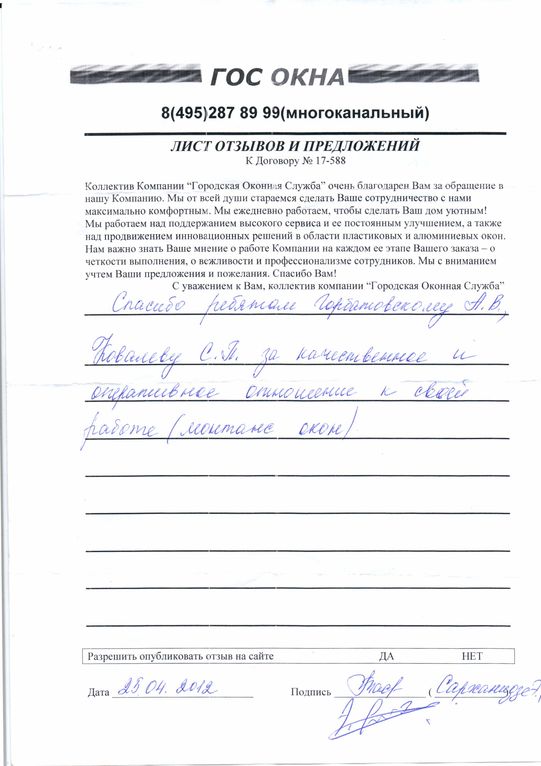 ГОС ОКНА
8(495)287 89 99(многоканальный)
ЛИСТ ОТЗЫВОВ И ПРЕДЛОЖЕНИЙ
К Договору № 17-588
Коллектив Компании “Городская Оконная Служба” очень благодарен Вам за обращение в
нашу Компанию. Мы от всей души стараемся сделать Ваше сотрудничество с нами
максимально комфортным. Мы ежедневно работаем, чтобы сделать Ваш дом уютным!
Мы работаем над поддержанием высокого сервиса и ее постоянным улучшением, а также
над продвижением инновационных решений в области пластиковых и алюминиевых окон.
Нам важно знать Ваше мнение о работе Компании на каждом ее этапе Вашего заказа – о
четкости выполнения, о вежливости и профессионализме сотрудников. Мы с вниманием
учтем Ваши предложения и пожелания. Спасибо Вам!
С уважением к Вам, коллектив компании “Городская Оконная Служба”
Спасибо ребятам Горбатовскому А.В.,
Ковалеву С.П. за качественное и
оперативное отношение к своей
работе (монтаж окон)
Разрешить опубликовать отзыв на сайте ДА НЕТ
Дата 25 04. 2012 Подпись (